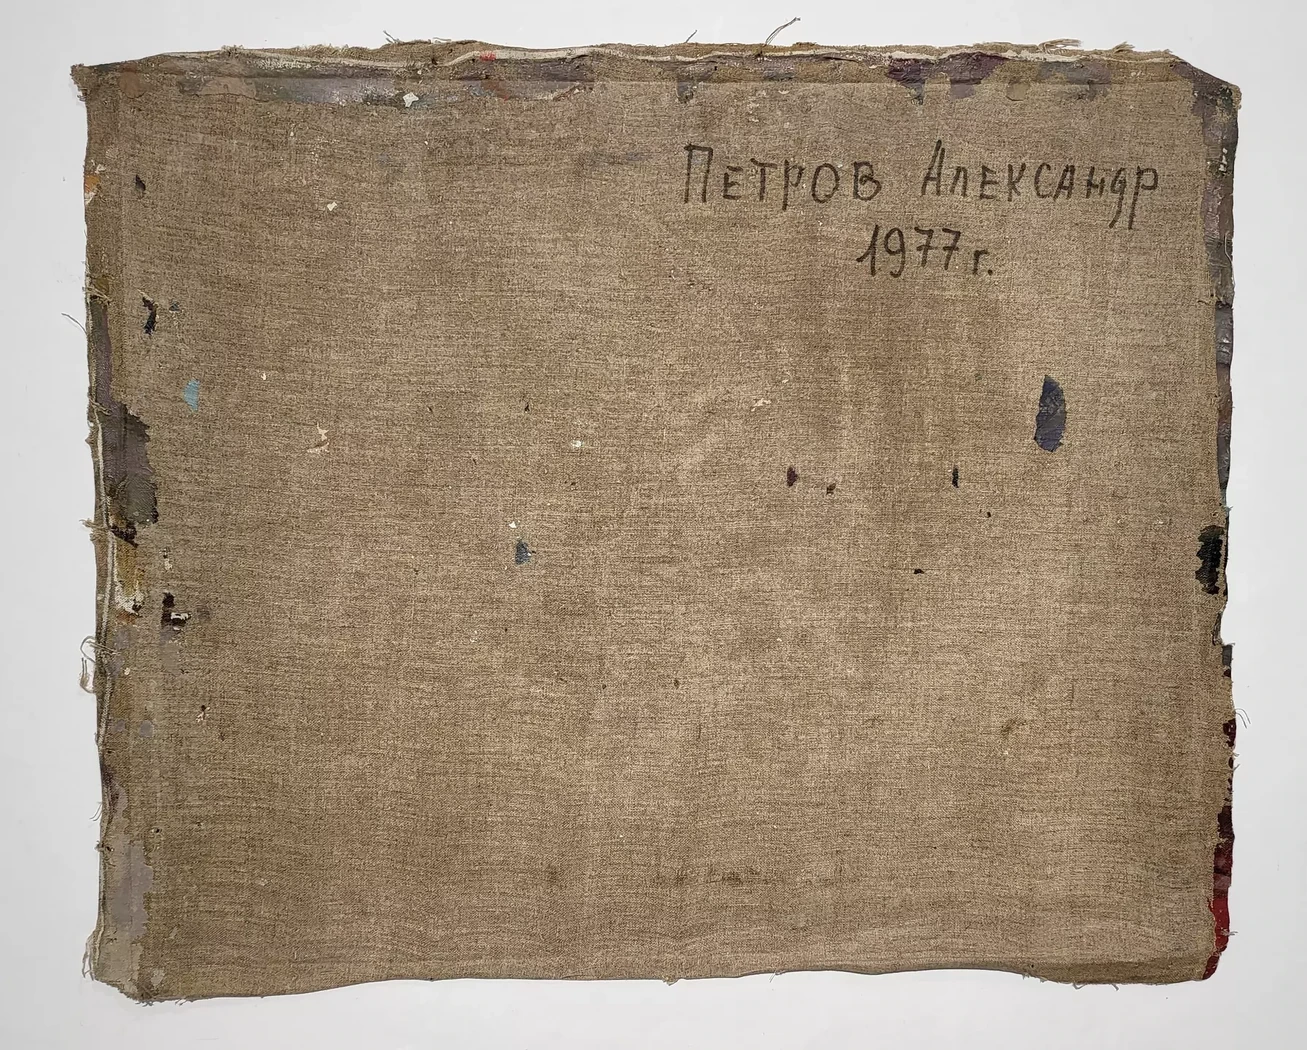 Петров Александр
1977 г.